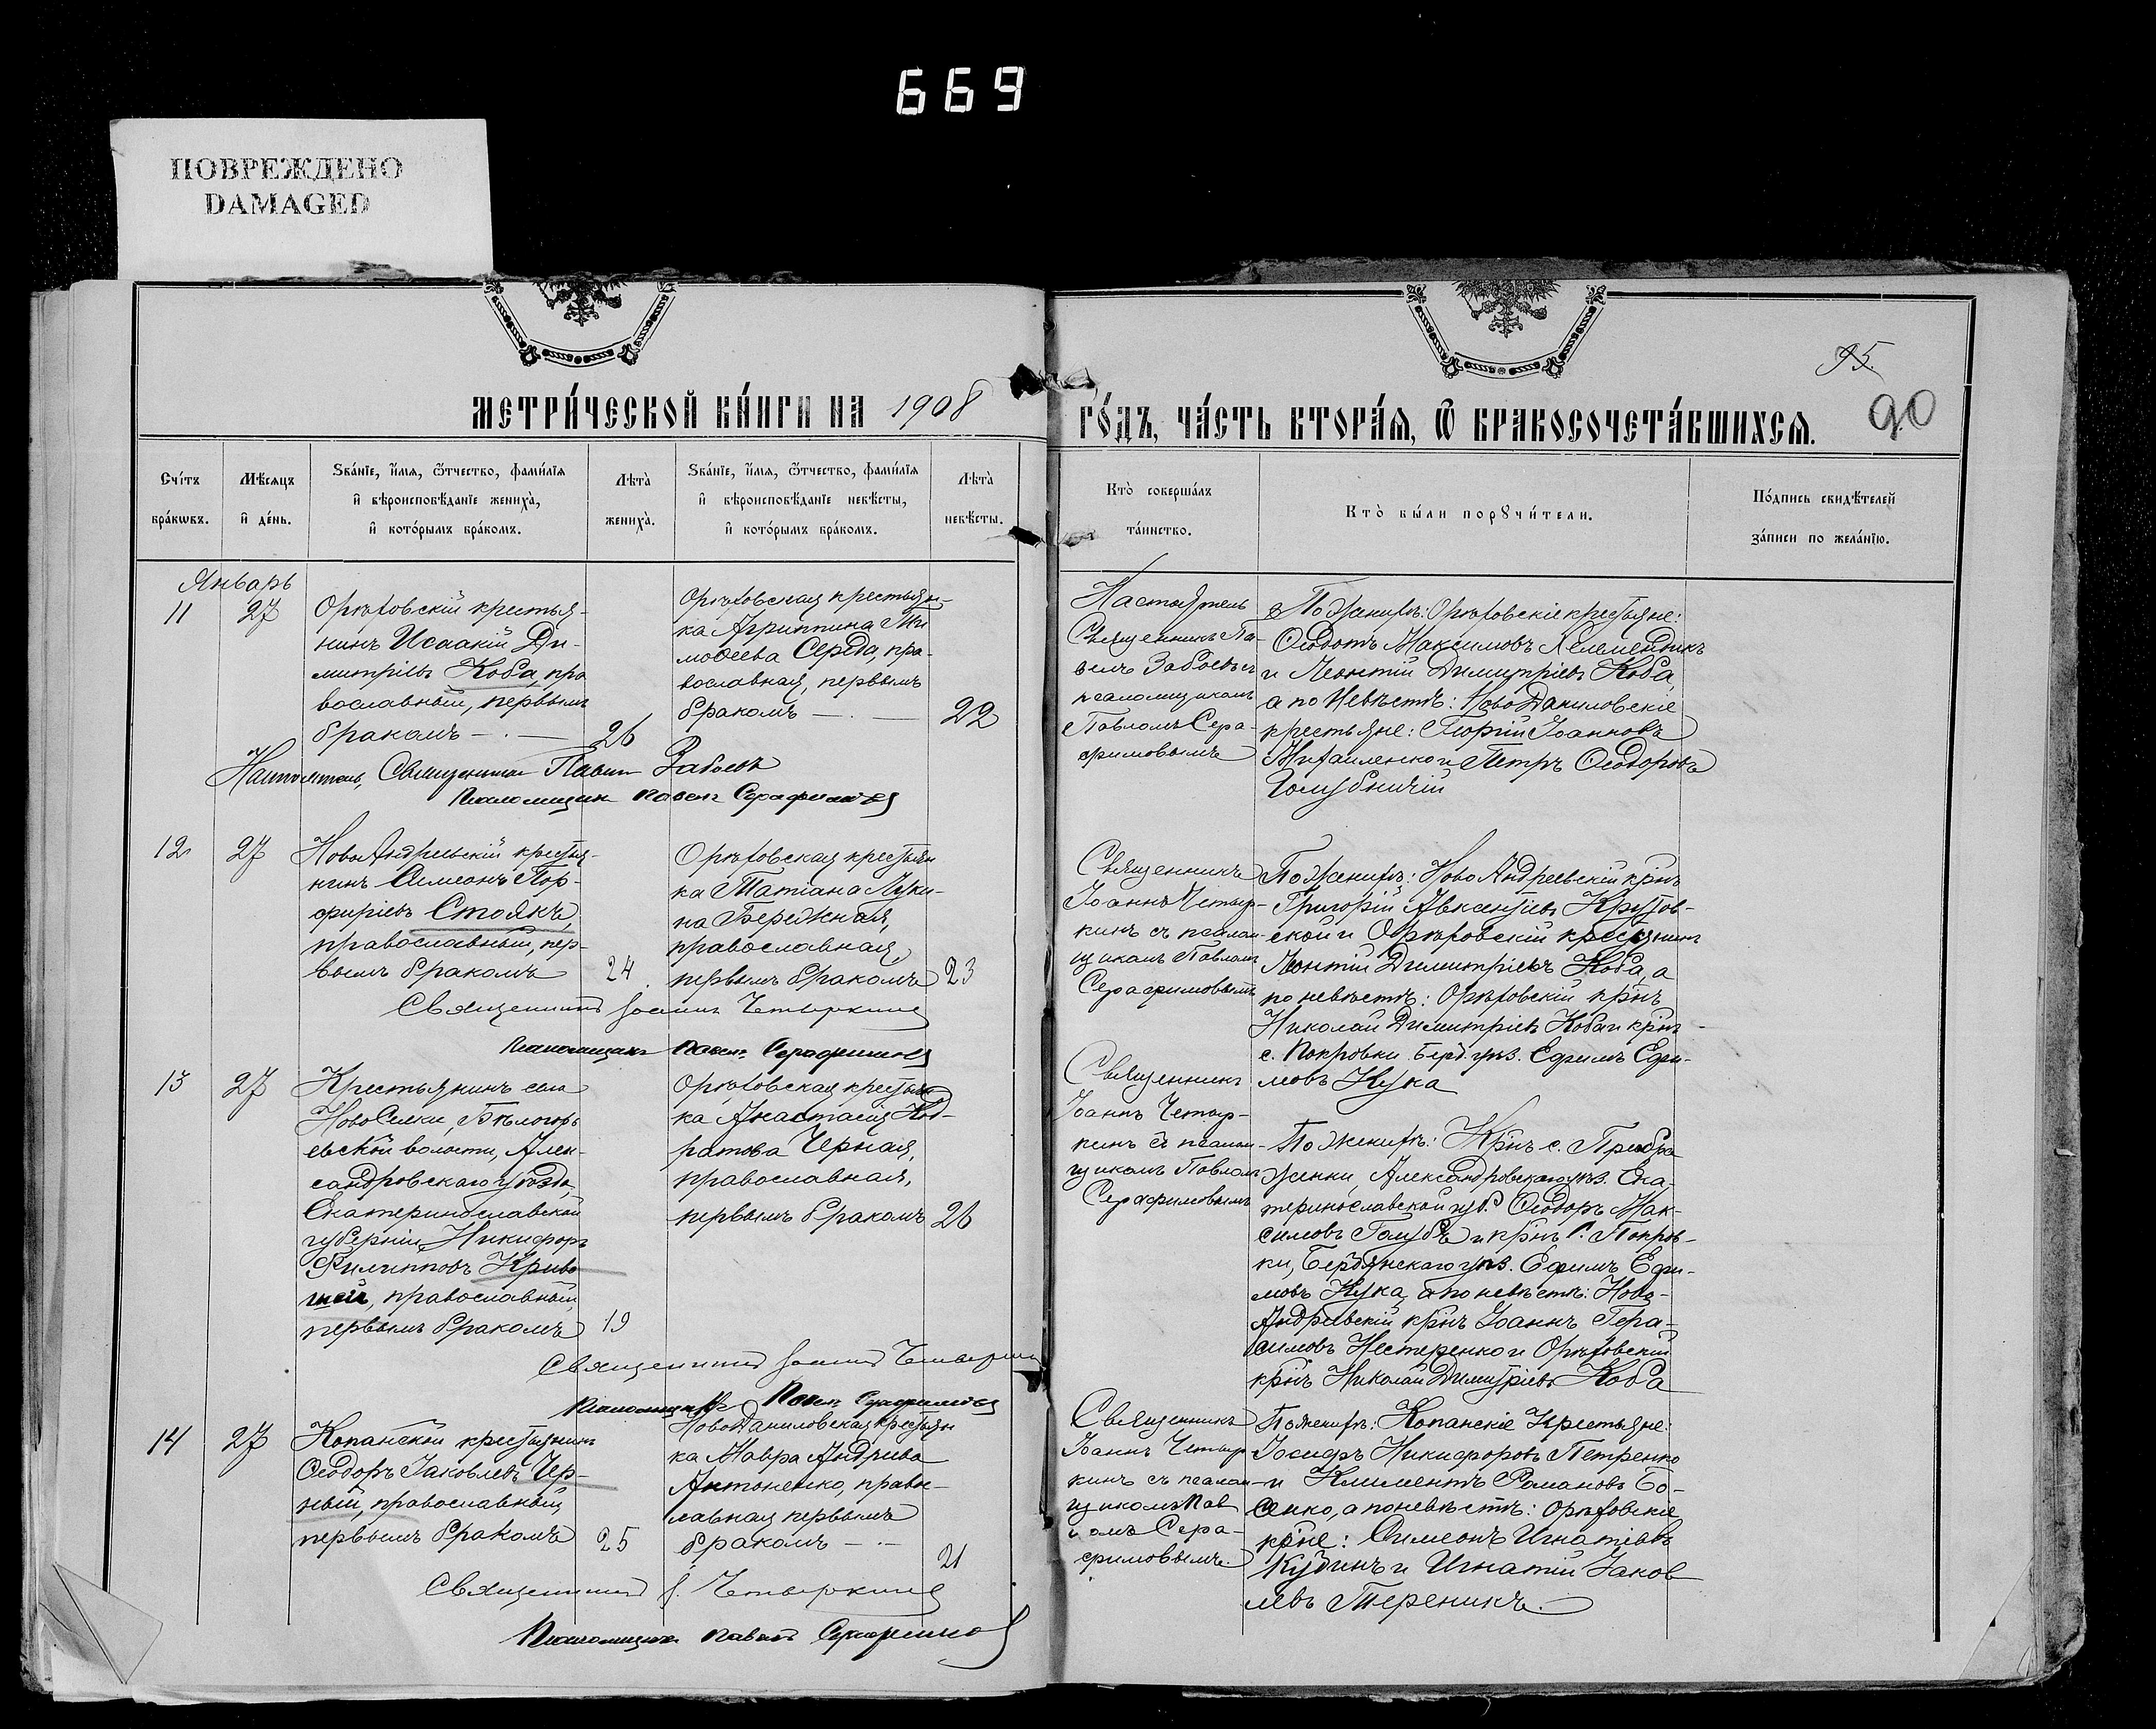 669
ПОВРЕЖДЕНО
DAMAGED
95.
90
МЕТРИ́ЧЕСКОЙ КНИ́ГИ НА 1908
ГО́ДЪ, ЧА́СТЬ ВТОРА́Я, Ѿ БРАКОСОЧЕТА́ВШИХСЯ.
Сче́тъ
бра́кѡвъ.
Мѣ́сяцъ
и҆ де́нь.
Ѕва́нїе, и҆́мя, ѻ҆́тчество, фами́лїя
и҆ вѣроисповѣ́данїе жениха̀,
и҆ кото́рымъ бра́комъ.
Лѣта̀
жениха̀.
Ѕва́нїе, и҆́мя, ѻ҆́тчество, фами́лїя
и҆ вѣроисповѣ́данїе невѣ́сты,
и҆ кото́рымъ бра́комъ.
Лѣта̀
невѣ́сты.
Кто̀ соверша́лъ
та́инство.
Кто̀ бы́ли порꙋчи́тели.
По́дпись свидѣ́телей
за́писи по жела́нїю.
Январь
11
27
Орѣховскій крестья-
нинъ Исаакій Ди-
митріевъ Коба, пра
вославный, первымъ
бракомъ
26
Орѣховская крестьян-
ка Агриппина Ти
моѳеева Середа, пра-
вославная, первымъ
бракомъ
22
Настоятель
Священникъ Па-
велъ Забоевъ съ
псаломщикомъ
Павломъ Сера-
фимовымъ
По женихѣ: Орѣховскіе крестьяне:
Ѳеодотъ Максимовъ Келемендикъ
и Леонтій Димитріевъ Коба,
а по невѣстѣ: Ново Даниловскіе
крестьяне: Георгій Іоанновъ
Михайленко и Петръ Ѳеодоровъ
Голубничій
Настоятель, Священникъ Павелъ Забоевъ
Псаломщикъ Павелъ Серафимовъ
12
27
Ново Андреевскій крестья-
нинъ Симеонъ Пор-
фиріевъ Стоякъ,
православный, пер-
вымъ бракомъ
24
Орѣховская крестьян
ка Татіана Луки-
на Бережная,
православная
первымъ бракомъ
23
Священникъ
Іоаннъ Четыр-
кинъ съ псалом-
щикомъ Павломъ
Серафимовымъ
По женихѣ: Ново Андреевскій крнъ
Григорій Авксентіевъ Крутов-
ской и Орѣховскій крестьянинъ
Леонтій Димитріевъ Коба, а
по невѣстѣ: Орѣховскій крнъ
Николай Димитріевъ Коба и крнъ
с. Покровки Берд. уѣз. Ефимъ Ефи-
мовъ Кука
Священникъ Іоаннъ Четыркинъ
Псаломщикъ Павелъ Серафимовъ
13
27
Крестьянинъ села
НовоСелки, Бѣлогорь
евской волости, Алек-
сандровскаго уѣзда,
Екатеринославской
губерніи, Никифоръ
Филипповъ Криво
шей, православный,
первымъ бракомъ
19
Орѣховская крестьян
ка Анастасія Код-
ратова Черная,
православная,
первымъ бракомъ
26
Священникъ
Іоаннъ Четыр-
кинъ съ псалом-
щикомъ Павломъ
Серафимовымъ
По женихѣ: Крнъ с. Преобра
женки, Александровскаго уѣз. Ека-
теринославской губ. Ѳеодоръ Мак-
симовъ Голубъ и крнъ с. Покров-
ки, Бердянскаго уѣз. Ефимъ Ефи-
мовъ Кука, а по невѣстѣ: Ново-
Андреевскій крнъ Іоаннъ Гера-
симовъ Нестеренко и Орѣховскій
крнъ Николай Димитріевъ Коба
Священникъ Іоаннъ Четыркинъ
Псаломщикъ Павелъ Серафимовъ
14
27
Копанской крестьянинъ
Ѳеодоръ Іаковлевъ Чер-
ный, православный,
первымъ бракомъ
25
Ново Даниловская крестьян
ка Мавра Андреева
Антоненко, право-
славная первымъ
бракомъ
21
Священникъ
Іоаннъ Четыр
кинъ съ псалом-
щикомъ Пав
ломъ Сера-
фимовымъ.
По женихѣ: Копанскіе крестьяне:
Іосифъ Никифоровъ Петренко
и Климентъ Романовъ Бо-
сенко, а по невѣстѣ: Орѣховскіе
крне: Симеонъ Игнатіевъ
Кубинъ и Игнатій Іаков
левъ Тереникъ.
Священникъ І. Четыркинъ
Псаломщикъ Павелъ Серафимовъ